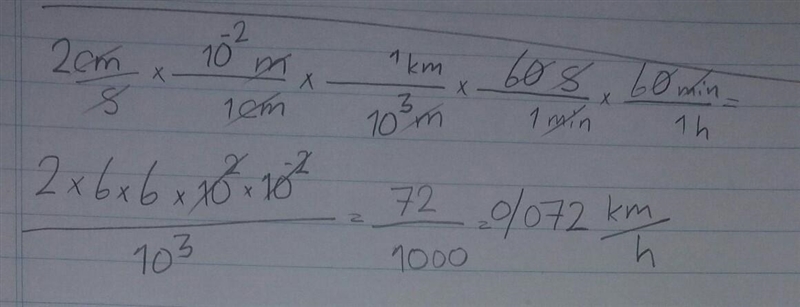 2cm/s × 10⁻² m/1cm × 1km/10³ m × 60 s/1 min × 60 min/1h =
2 × 6 × 6 × 10² × 10⁻²/10³ = 72/1000 = 0/072 km/h